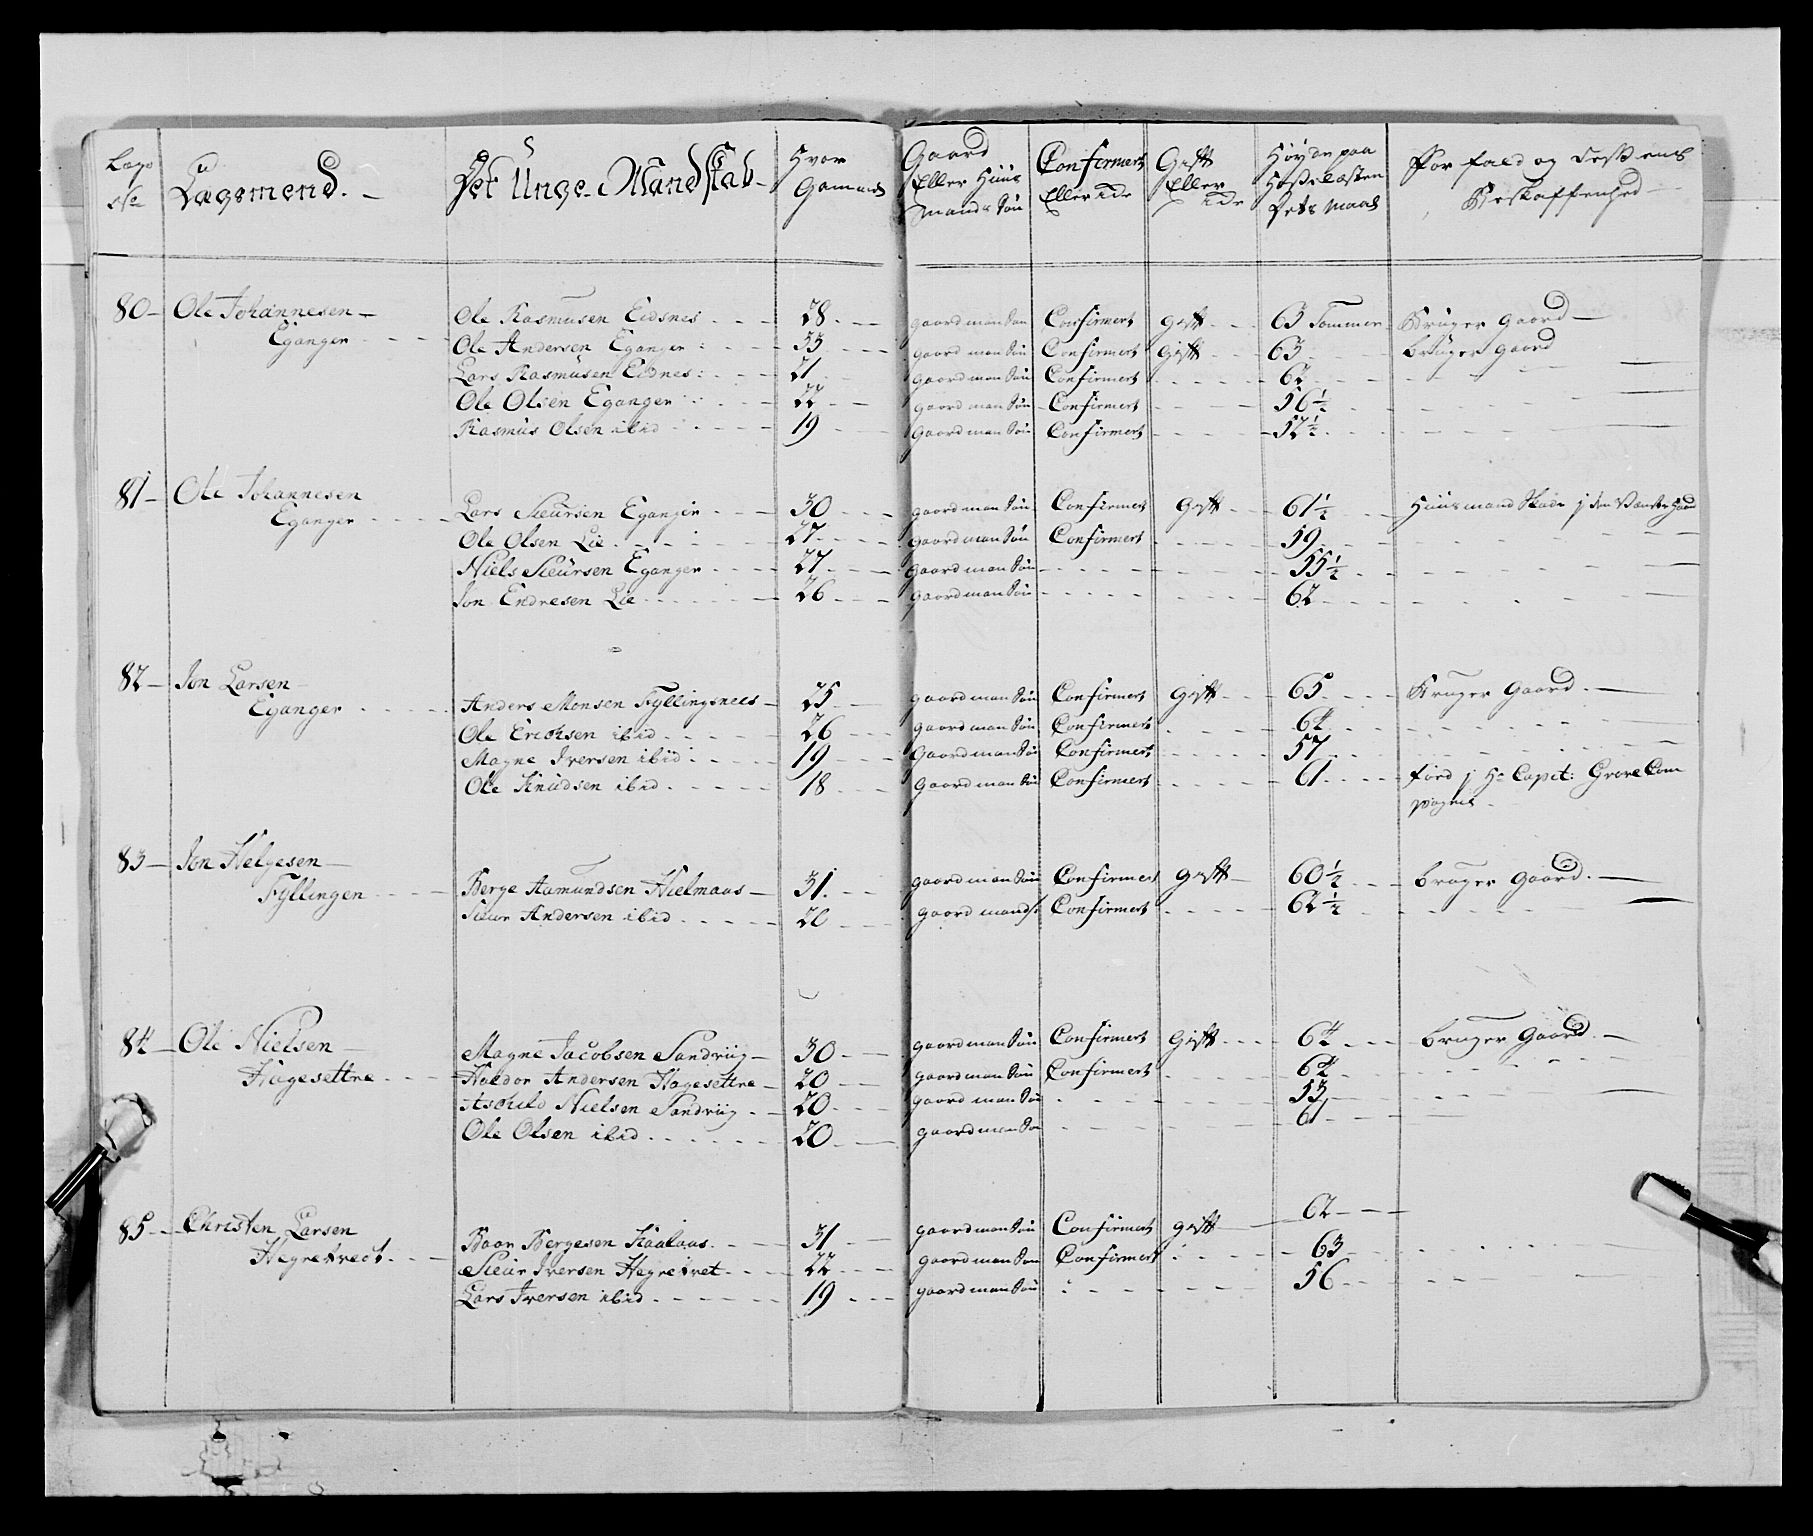 Lægs No Lægsmend. Det Unge Mandskab Hvor Gammel Gaard Eller Huus Mands Søn Confirmert Eller Icke Gift Eller Icke Høyde paa Maal For fald og dessens Beskaffenhed
80 Ole Johannesen Ole Rasmusen Eidsnes 28 gaard man Søn Confirmert gift 63 Tommer Bruger gaard
Eganger Ole Andersen Eganger 33 gaard man Søn Confirmert Gift 63 bruger gaard
Lars Rasmusen Eidnes 21 gaard man Søn Confirmert 62
Ole Olsen Eganger 22 gaard man Søn Confirmert 56 1/2
Rasmus Olsen ibid 19 gaard man Søn Confirmert 52 1/2
81 Ole Johannesen Lars Sieursen Eganger 30 gaard man Søn Confirmert Gift 61 1/2 Huusmand
Eganger Ole Olsen Lie 27 gaard man Søn Confirmert 59
Niels Sieursen Eganger 27 gaard man Søn 55 1/2
Jon Endresen Lie 26 gaard man Søn 62
82 Jon Larsen Anders Monsen Fyllingsnees 25 gaard man Søn Confirmert Gift 65 Bruger Gaard
Eganger Ole Erichsen ibid 26 gaard man Søn Confirmert 64
Magne Iversen ibid 19 Gaard man Søn Confirmert 57
Ole Knudsen ibid 18 gaard man Søn Confirmert 61 förd j Hr Capit: Grove Com
pagnie
83 Jon Helgesen Berge Aamundsen Hielmaas 31 gaard man Søn Confirmert gift 60 1/2 bruger Gaard
Fyllingen Sieur Andersen ibid 20 gaard mands Confirmert 62 1/2
84 Ole Nielsen Magne Jacobsen Sandviig 30 gaard man Søn Confirmert Gift 64 bruger Gaard
Hagesettre Haldor Andersen Hagesettre 20 gaard man Søn Confirmert 62
Aschild Nielsen Sandviig 20 gaard man Søn 53
Ole Olsen ibid 20 gaard man Søn 61
85 Christen Larsen Baar Bergesen Kaalaas 31 gaard man Søn Confirmert gift 62
Hegretvect Sieur Iversen Hegretvet 22 gaard man Søn Confirmert 63
Lars Iversen ibid 19 gaard man Søn 56